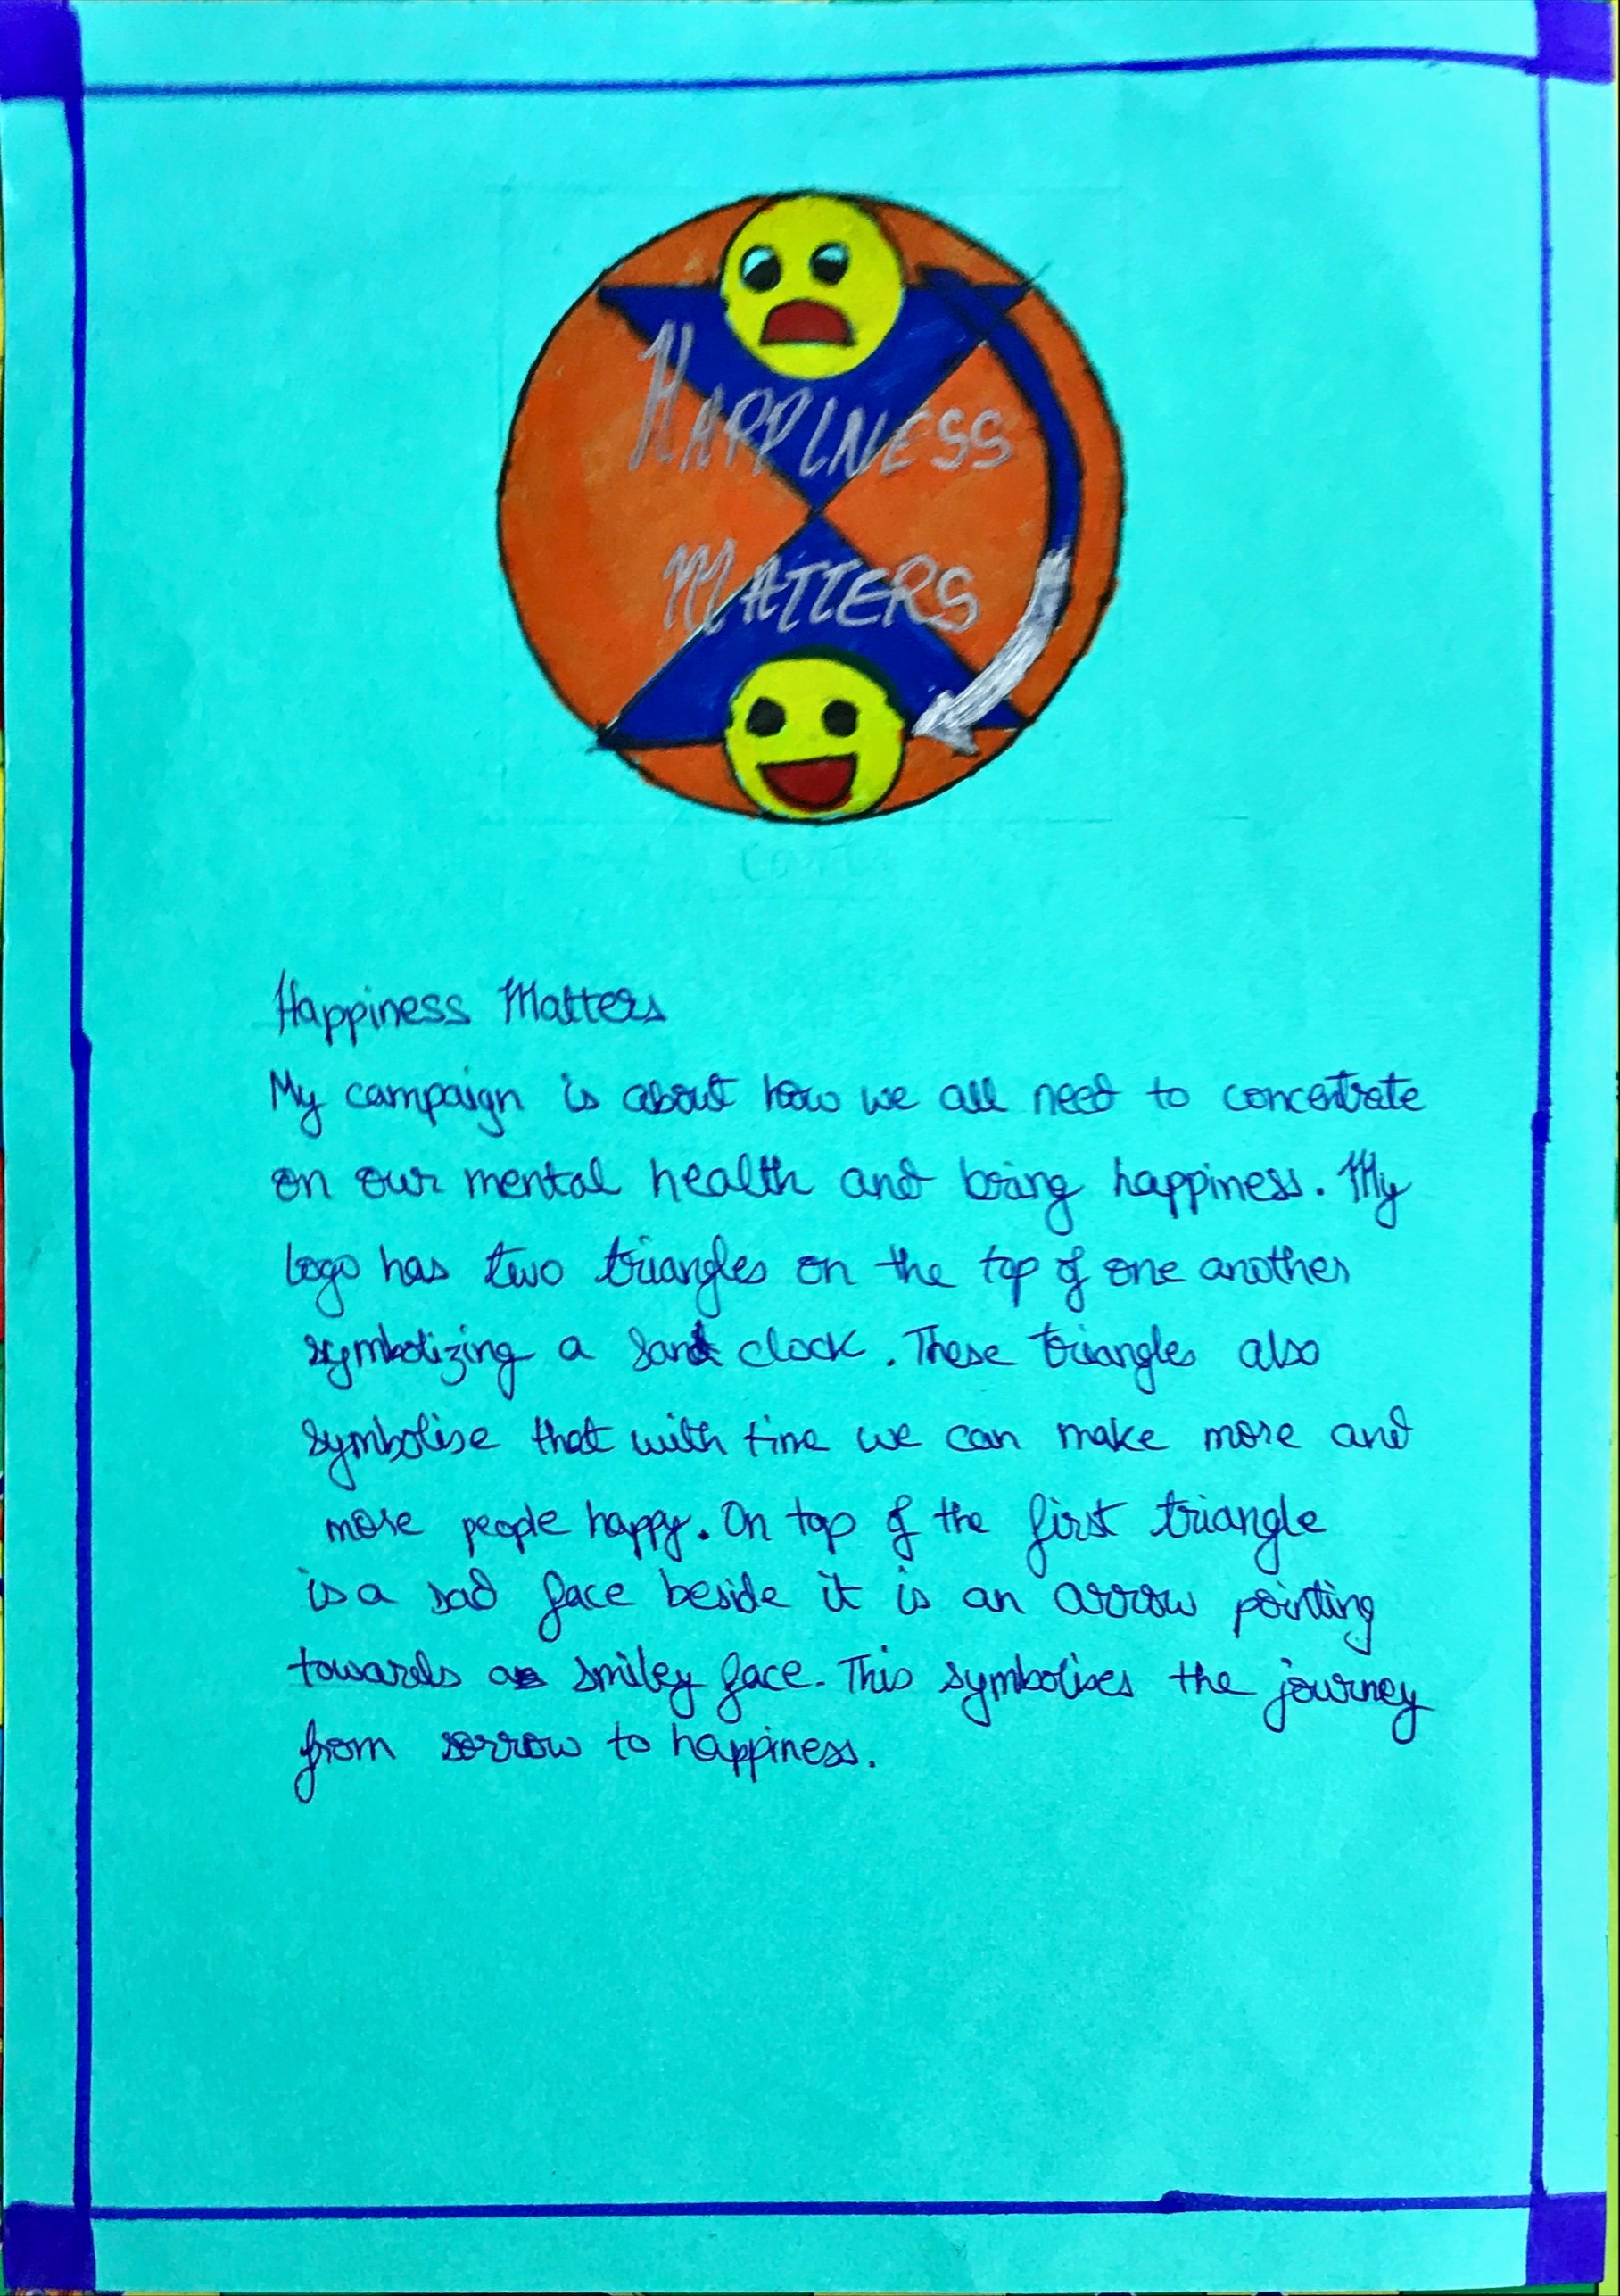 HAPPINESS
MATTERS
Happiness Matters
My campaign is about how we all need to concentrate
on our mental health and bring happiness. My
logo has two triangles on the top of one another
symbolizing a sand clock. These triangles also
symbolise that with time we can make more and
more people happy. On top of the first triangle
is a sad face beside it is an arrow pointing
towards a smiley face. This symbolises the journey
from sorrow to happiness.